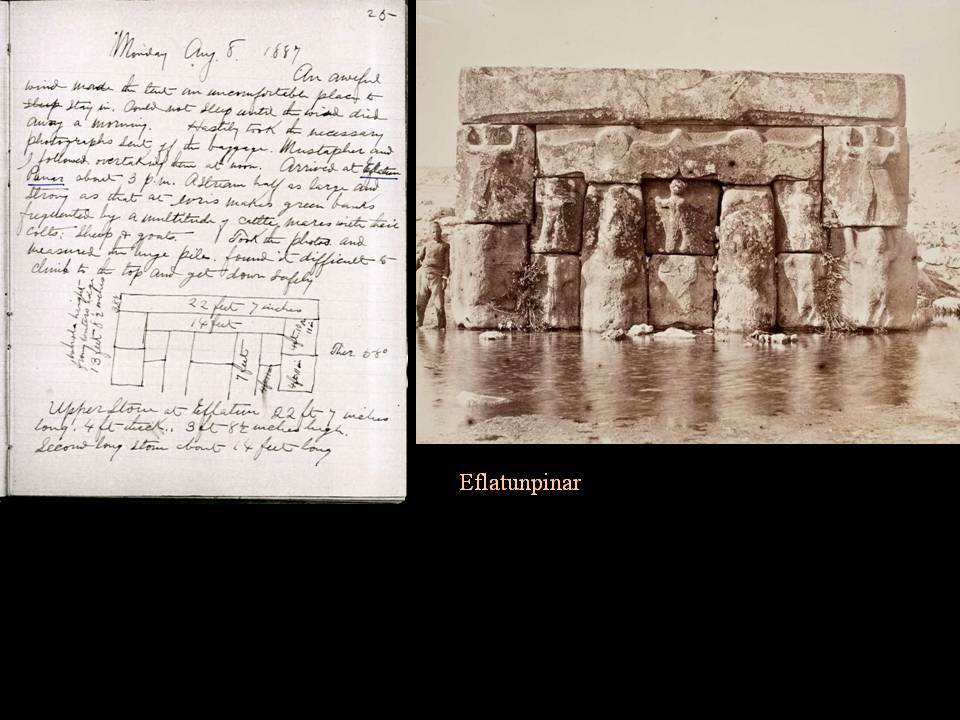 25
Monday Aug. 8. 1887
An aweful
wind made the tent an uncomfortable place to
sleep stay in. Could not sleep until the wind died
away a morning. Hastily took the necessary
photographs sent off the baggage. Mustapher and
I followed overtaking them at noon. Arrived at Eflatun
Punar about 3 p.m. A stream half as large and
strong as that at Ivris makes green banks
frequented by a multitude of cattle, mares with their
colts, sheep & goats. Took the photos and
measured the huge pile. found it difficult to
climb to the top and get down safely
22 feet 7 inches
14 feet
7 feet
Ther 55°
13 feet 8½ inches
Upper Stone at Efflatun 22 ft 7 inches
long. 4 ft thick.. 3 ft 8½ inches high.
Second long stone about 14 feet long
Eflatunpinar